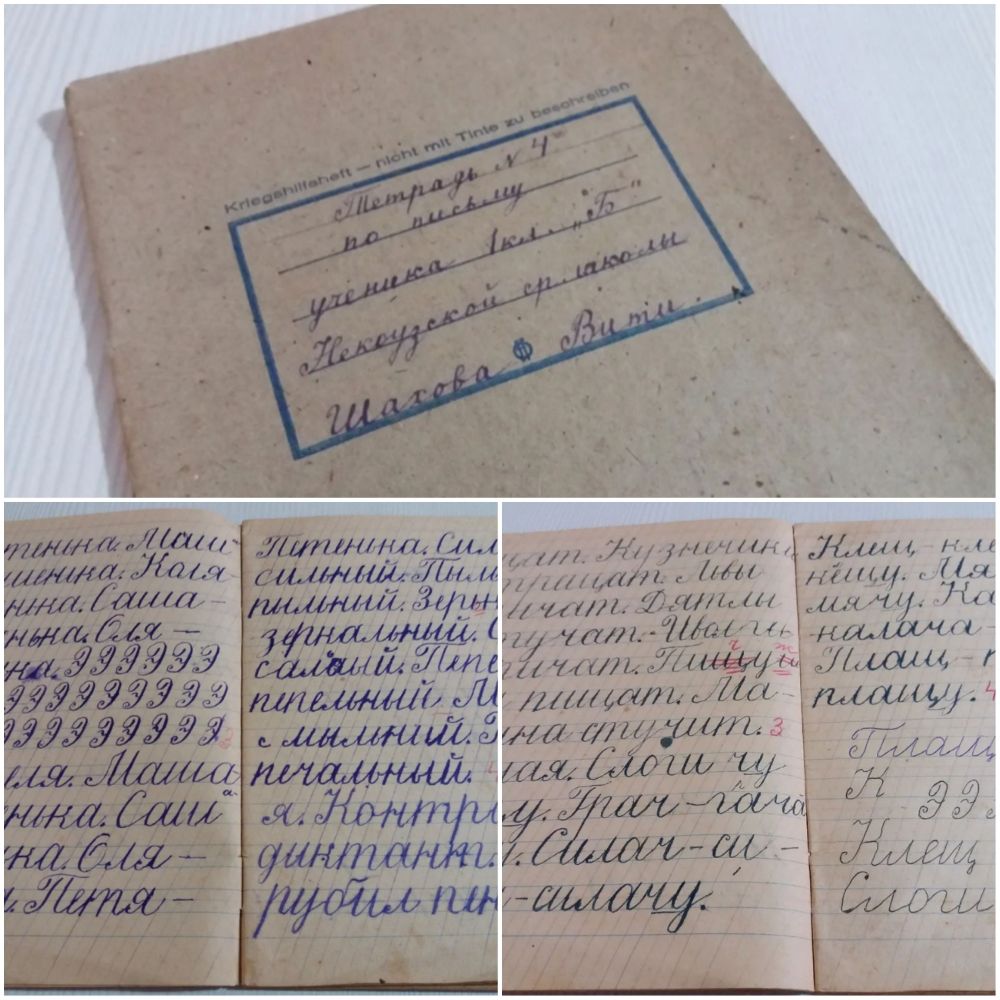 Kriegshilfsheft – nicht mit Tinte zu beschreiben
Тетрадь № 4
по письму
ученика 1 кл. „Б"
Некоузской ср. школы
Шахова Вити.
тенька. Маш-
шенька. Коля-
нька. Саша –
нька. Оля –
ка. ЭЭЭЭЭЭ
ЭЭЭЭЭЭЭЭЭ
ЭЭЭЭЭЭЭЭЭ 3
еля. Маша
нька. Саш
ка. Оля –
Петя –
Петенька. Сил
сильный. Пыль
пыльный. Зерк
зеркальный. С
салый. Пепе
пепельный. М
с мыльний.
печальный. 4
я. Контр
диктант.
рубил пен
щат. Кузнечики
трицат. Львы
ичат. Дятлы
тучат. Иволги
ричат.
пищат. Ма-
на стучит. 3
ая. Слоги чу
у. Грач – гача
Силач – си –
– силачу.
Клещ – кле
клещу. Мя
мячу. Ка
калача –
Плащ – п
плащу. 4
Плащ
К ЭЭ
Клещ
Слоги